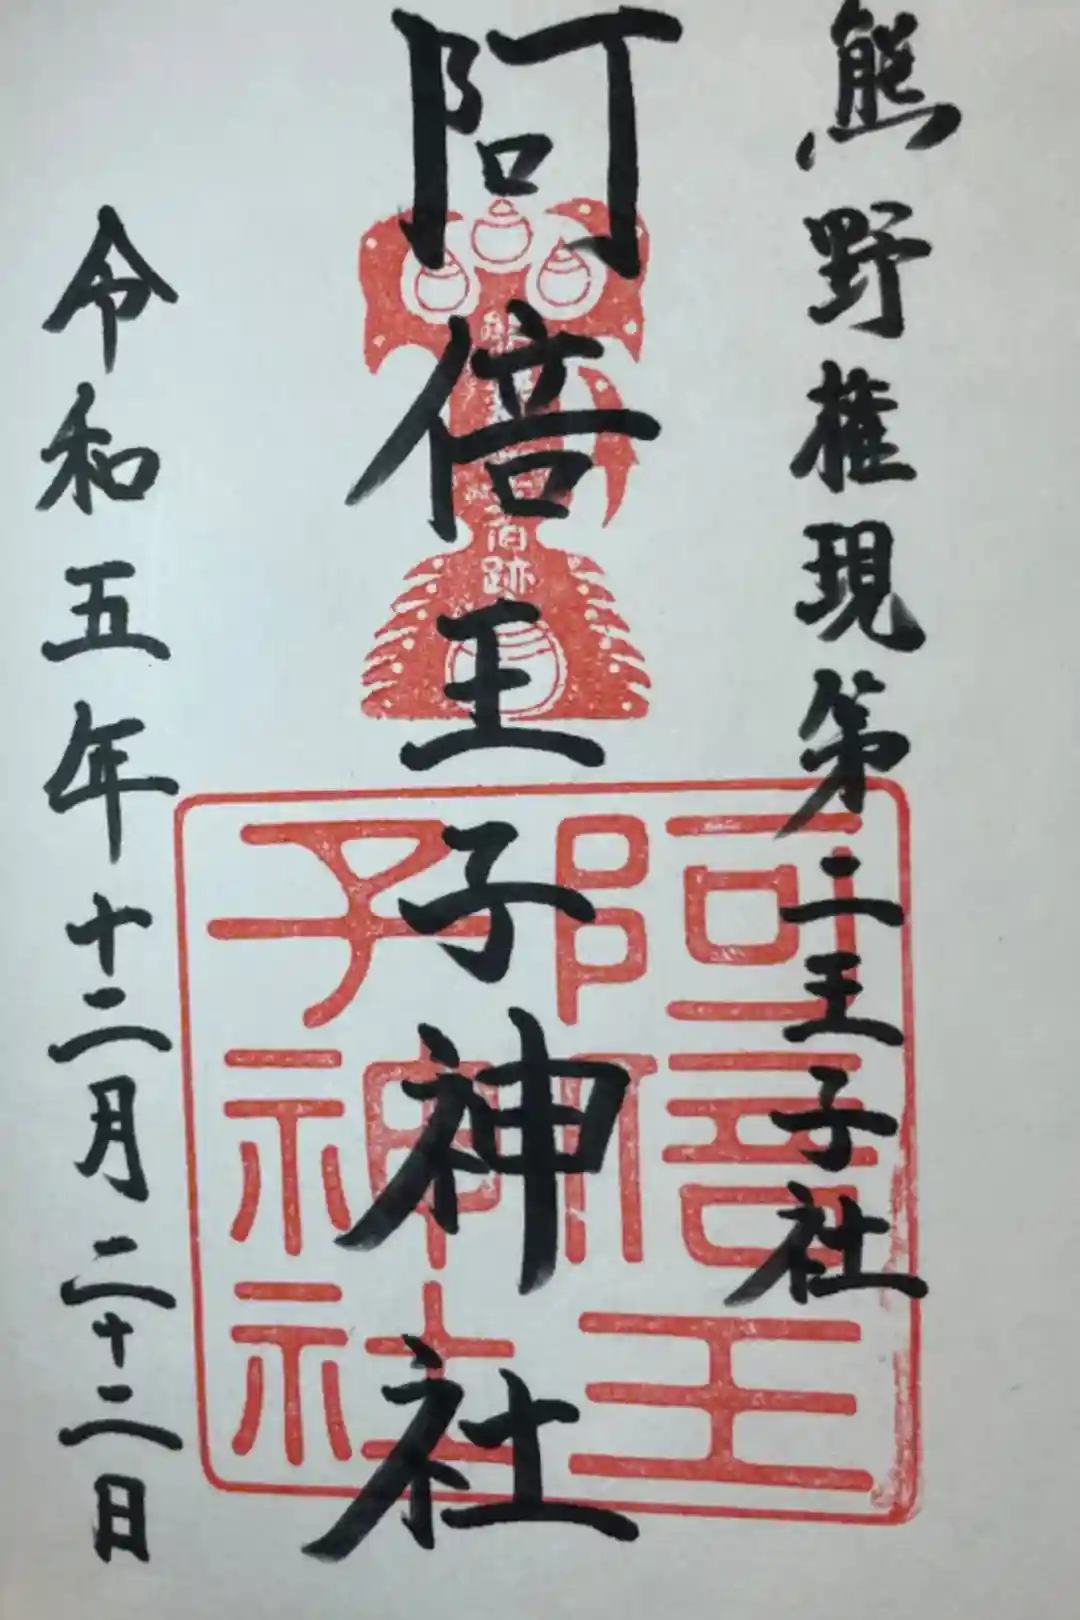 熊野権現第二王子社
阿倍王子神社
令和五年十二月二十二日
阿倍王
子神社
旧跡